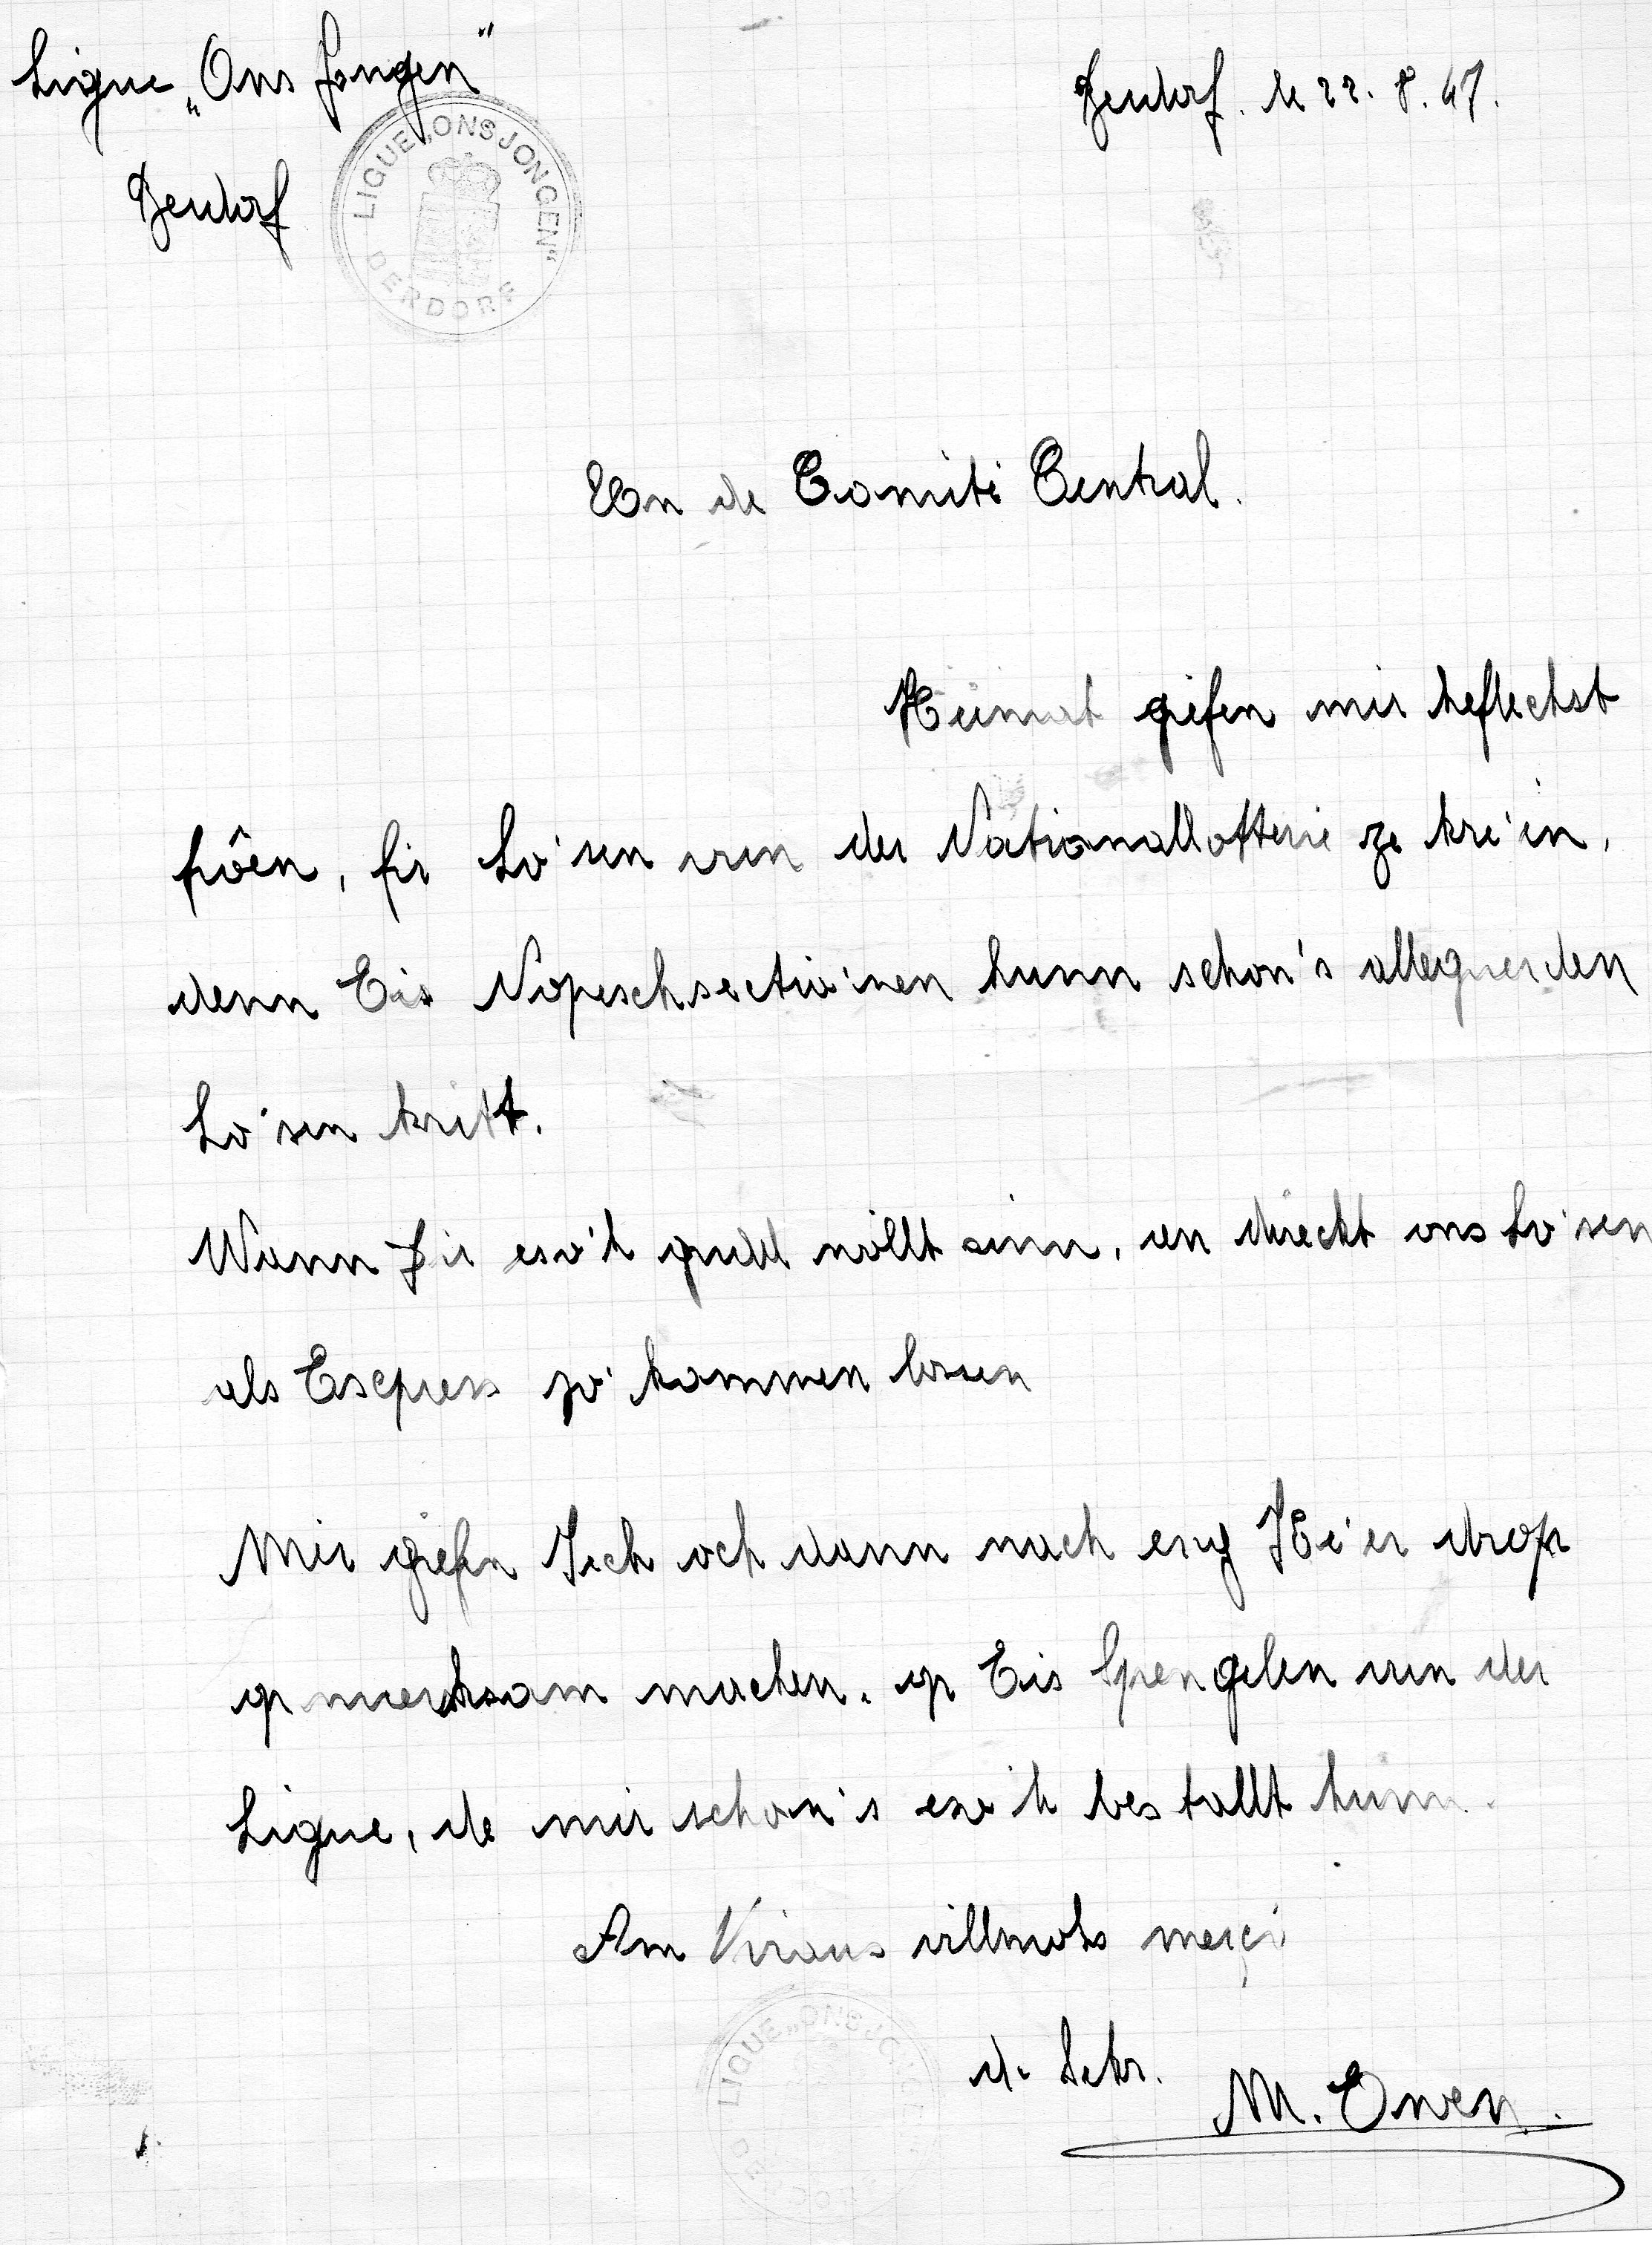 Ligue „Ons Jongen"
Berdorf. le 22. 8. 47.
Berdorf
LIGUE „ONS JONGEN"
BERDORF
Un de Comité Central.
Heimat giefen mir heflechst
frôen, fir Lo'sen vun der Nationallotterie ze kre'in,
denn Eis Nopeschsectio'nen hunn schon's alleguerden
Lo'sen kritt.
Wann Dir eso'h gudd wöllt sinn, an direckt ons Lo'sen
als Express zo' kommen lossen
Mir giefen Iech och dann nach eng Ke'er drop
opmierksam machen. op Eis Spengelen vun der
Ligue, de mir schon's eso'h bestallt hunn.
Am Viraus villmols merçi
LIGUE „ONS JONGEN
d. Sekr.
M. Owen.